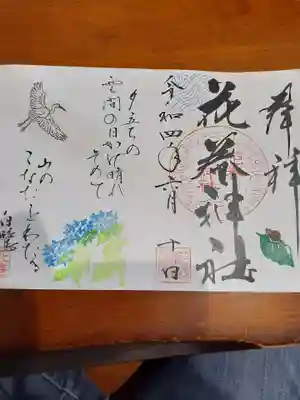 奉拝
神社
令和四年六月十日
夕立ちの
雲間の日かげ晴れ
そめて
山の
こなたをわたる
白鷺